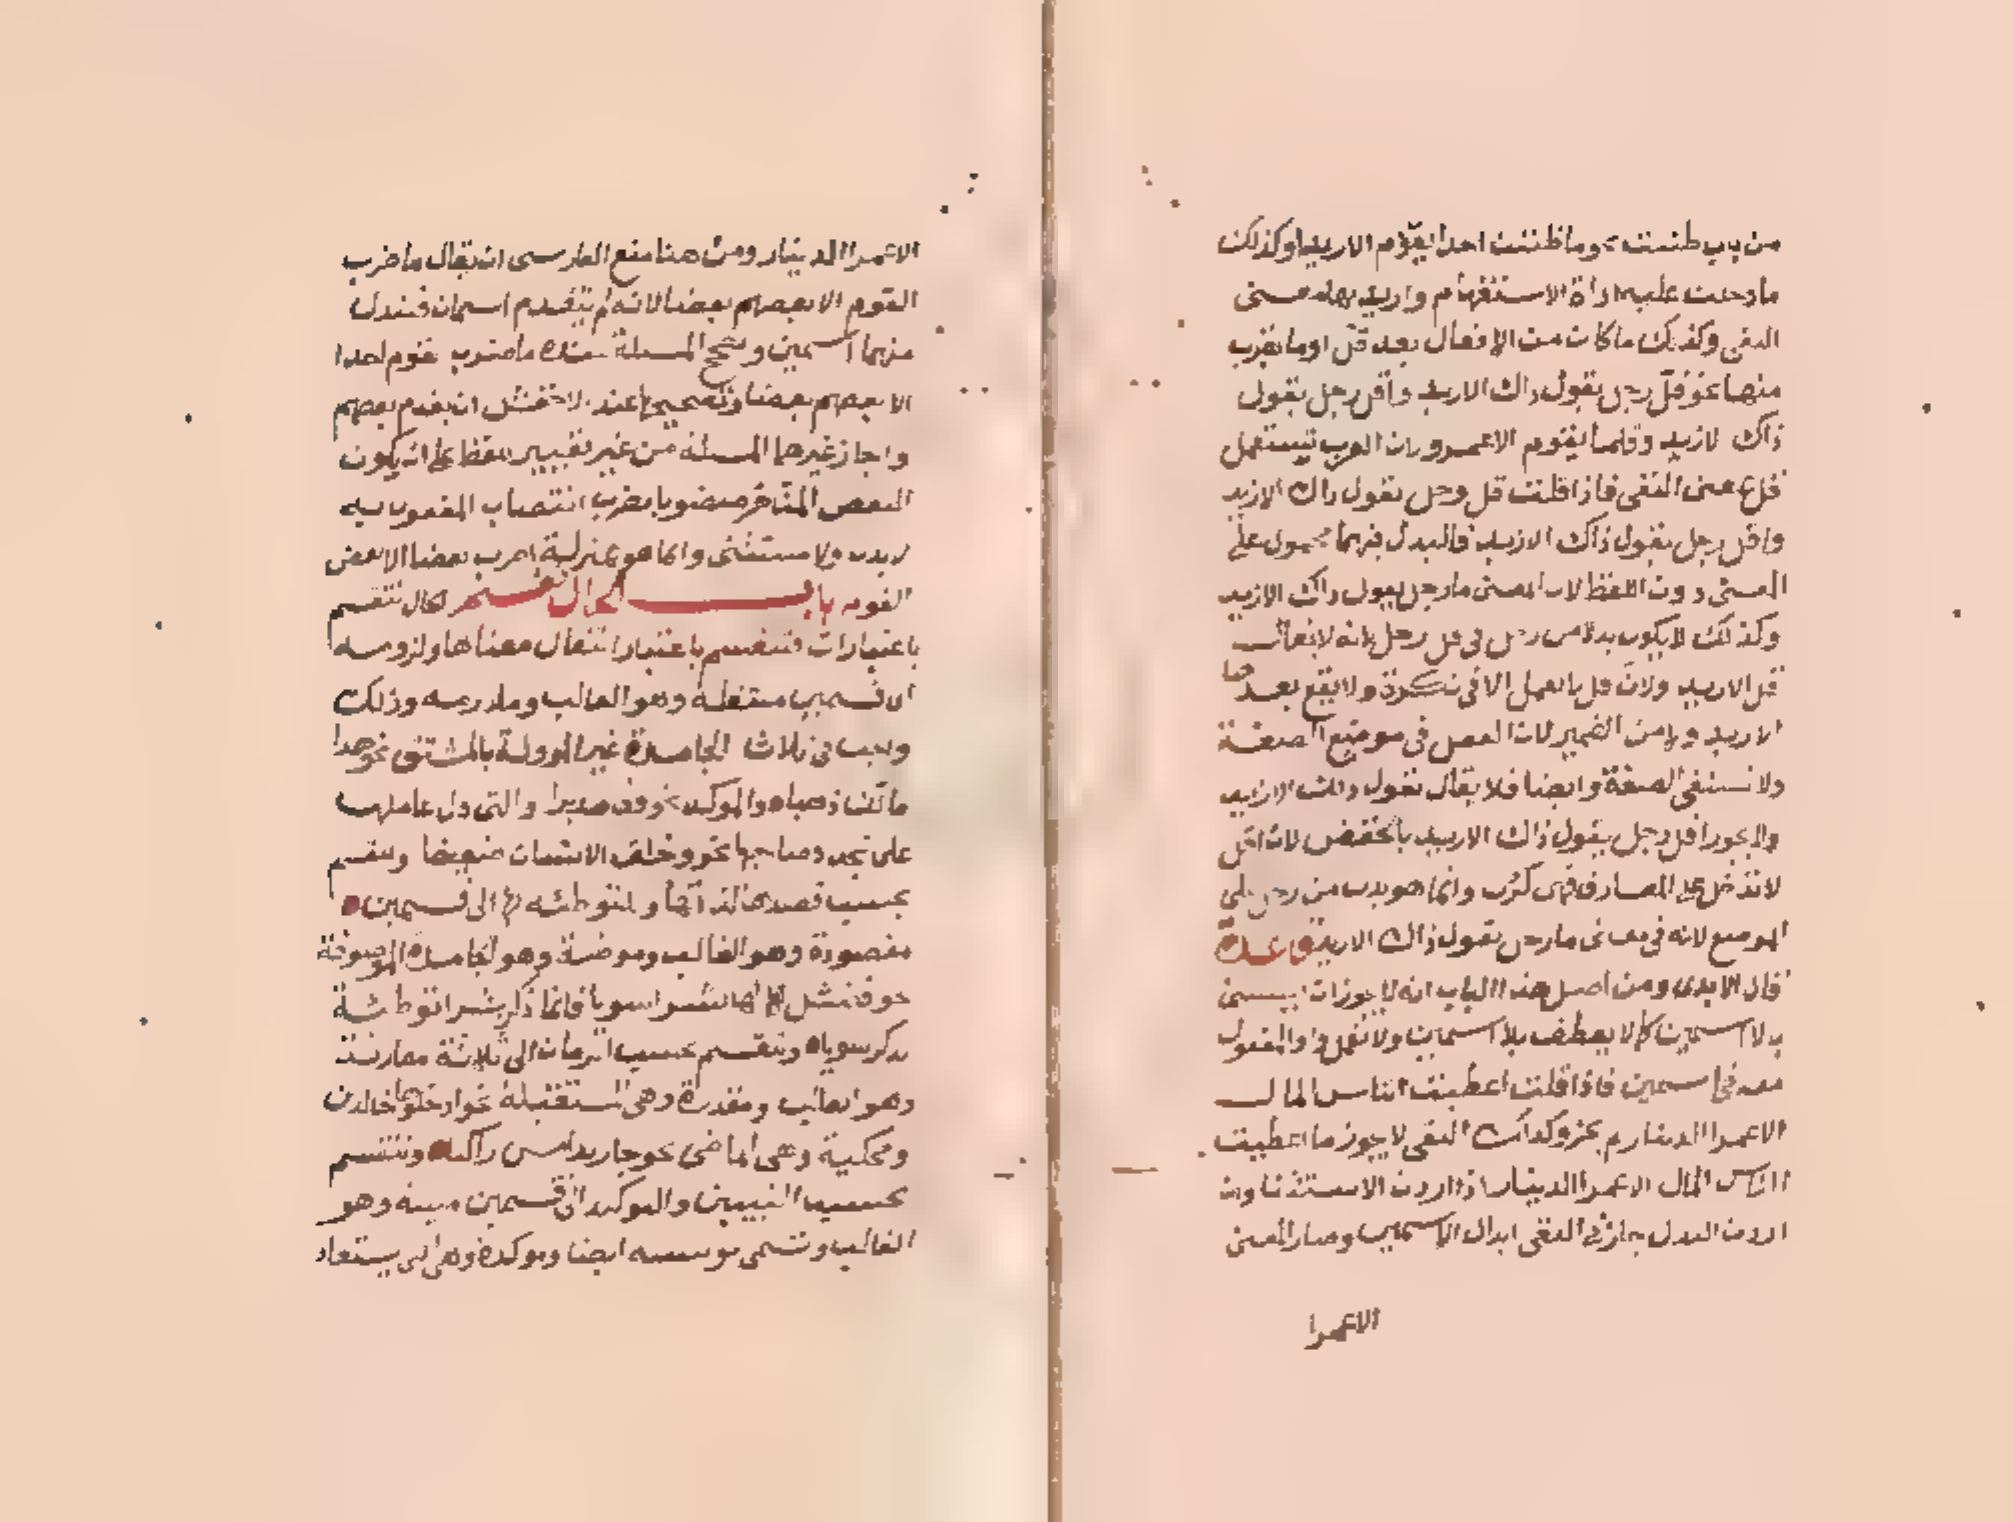 من باب ظننت نحو ما ظننت احدا يقوم الا زيدا وكذلك
ما دخلت عليه اداة الاستفهام واريد بها معنى
النفي وكذلك ما كان من الافعال بعد قل او ما يقرب
منها نحو قل رجل يقول ذاك الا زيد واقل رجل يقول
ذاك الا زيد وقلما يقوم الا عمرو لان العرب تستعمل
قل بمعنى النفي فاذا قلت قل رجل يقول ذاك الا زيد
واقل رجل يقول ذاك الا زيد فالبدل فيهما محمول على
المعنى دون اللفظ لان المعنى ما رجل يقول ذاك الا زيد
وكذلك لا يكون بدلا من رجل في قل رجل لانه لا يقال
قل الا زيد ولان قل لا تعمل الا في نكرة ولا يقع بعدها
الا زيد ولا من الضمير لان الفعل في موضع الصفة
ولا تستثنى الصفة وايضا فلا يقال يقول ذلك الا زيد
ولا يجوز اقل رجل يقول ذاك الا زيد بالخفض لان اقل
لا تدخل على المعارف فهي كرب وانما هو بدل من رجل على
الموضع لانه في معنى ما رجل يقول ذاك الا زيد قاعدة
قال الابدي ومن اصل هذا الباب انه لا يجوز ان يستثنى
بالا اسمين كما لا يعطف بلا اسمين ولا تعمل واو المفعول
معه في اسمين فاذا قلت اعطيت الناس المال
الا عمرا الدينار لم يجز وكذلك النفي لا يجوز ما اعطيت
الناس المال الا عمرا الدينار اذا اردت الاستثنا وان
اردت البدل جاز في النفي ابدال الاسمين وصار المعنى
الا عمرا
الا عمرا الدينار ومن هنا منع الفارسي ان يقال ما ضرب
القوم الا بعضهم بعضا لانه لم يتقدم اسمان فتبدل
منهما اسمين وتصحيح المسلة عنده ما ضرب القوم احدا
الا بعضهم بعضا وتصحيحها عند الاخفش ان يقدم بعضهم
واجاز غيرهما المسلة من غير تغيير اللفظ على ان يكون
البعض المتاخر منصوبا بضرب انتصاب المفعول به
لا بدل ولا مستثنى وانما هو بمنزلة ضرب بعضا الا بعض
القوم باب الحال تنقسم
باعتبارات فتنقسم باعتبار انتقال معناها ولزومه
الى قسمين منتقلة وهو الغالب وملازمه وذلك
واجب في ثلاث الجامدة غير المؤولة بالمشتق نحو هذا
مالك ذهبا والموكدة نحو ولى مدبرا والتي دل عاملها
على تجدد صاحبها نحو وخلق الانسان ضعيفا وتنقسم
بحسب قصدها لذاتها والتوطئه لها الى قسمين
مقصودة وهو الغالب وموطئة وهو الجامدة الموصوفة
نحو فتمثل لها بشرا سويا فانما ذكر بشرا توطئة
لذكر سويا وتنقسم بحسب الزمان الى ثلاثة مقارنة
وهو الغالب ومقدرة وهي المستقبلة نحو ادخلوها خالدين
ومحكية وهي الماضي نحو جا زيد امس راكبا وتنقسم
بحسب التبيين والتوكيد الى قسمين مبينه وهو
الغالب وتسمى موسسه ايضا وموكدة وهي التي يستفاد